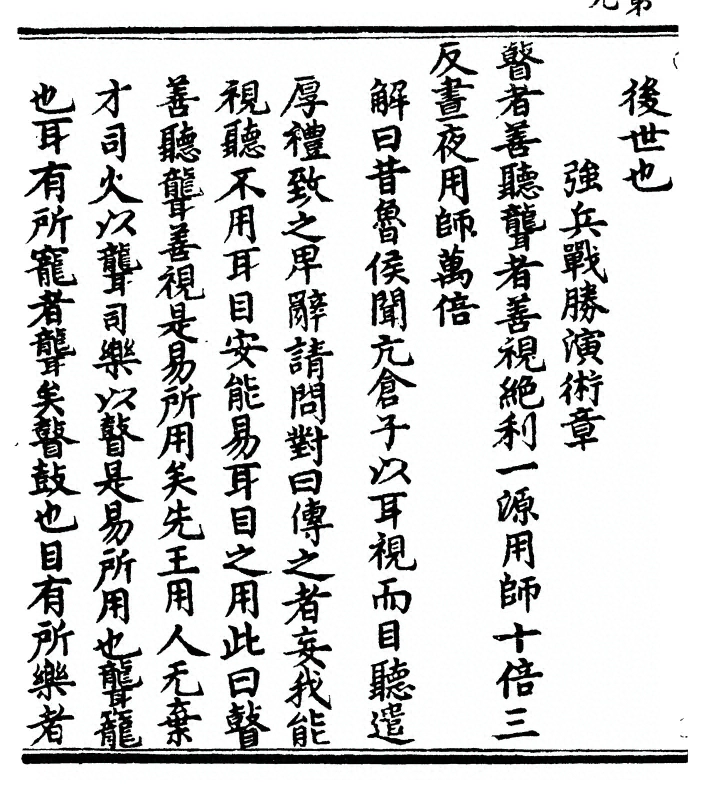 後世也
強兵戰勝演術章
瞽者善聽聾者善視絶利一源用師十倍三
反晝夜用師萬倍
解曰昔魯侯聞亢倉子以耳視而目聽遣
厚禮致之卑辭請問對曰傳之者妄我能
視聽不用耳目安能易耳目之用此曰瞽
善聽聾善視是易所用矣先王用人无棄
才司火以聾司樂以瞽是易所用也聾寵
也耳有所寵者聾矣瞽鼓也目有所樂者